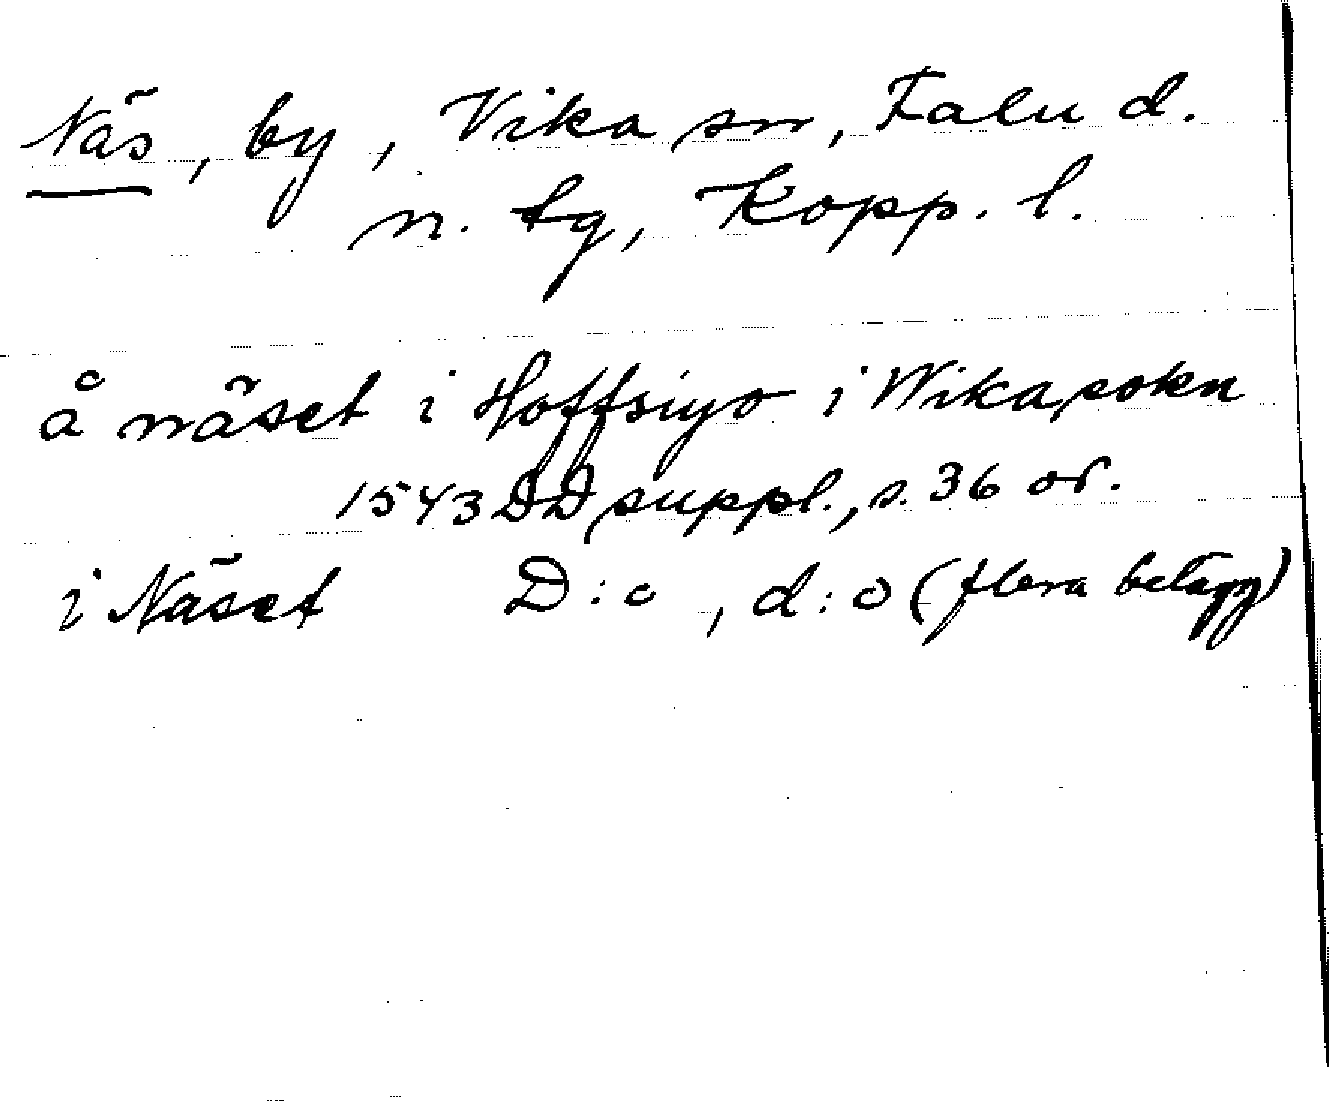 Näs, by, Vika sn, Falu d.
n. tg, Kopp. l.
å näset i Hoffsiyo i Wika sokn
1543 DD suppl., s. 36 or.
i Näset D:o, d:o (flera belägg)